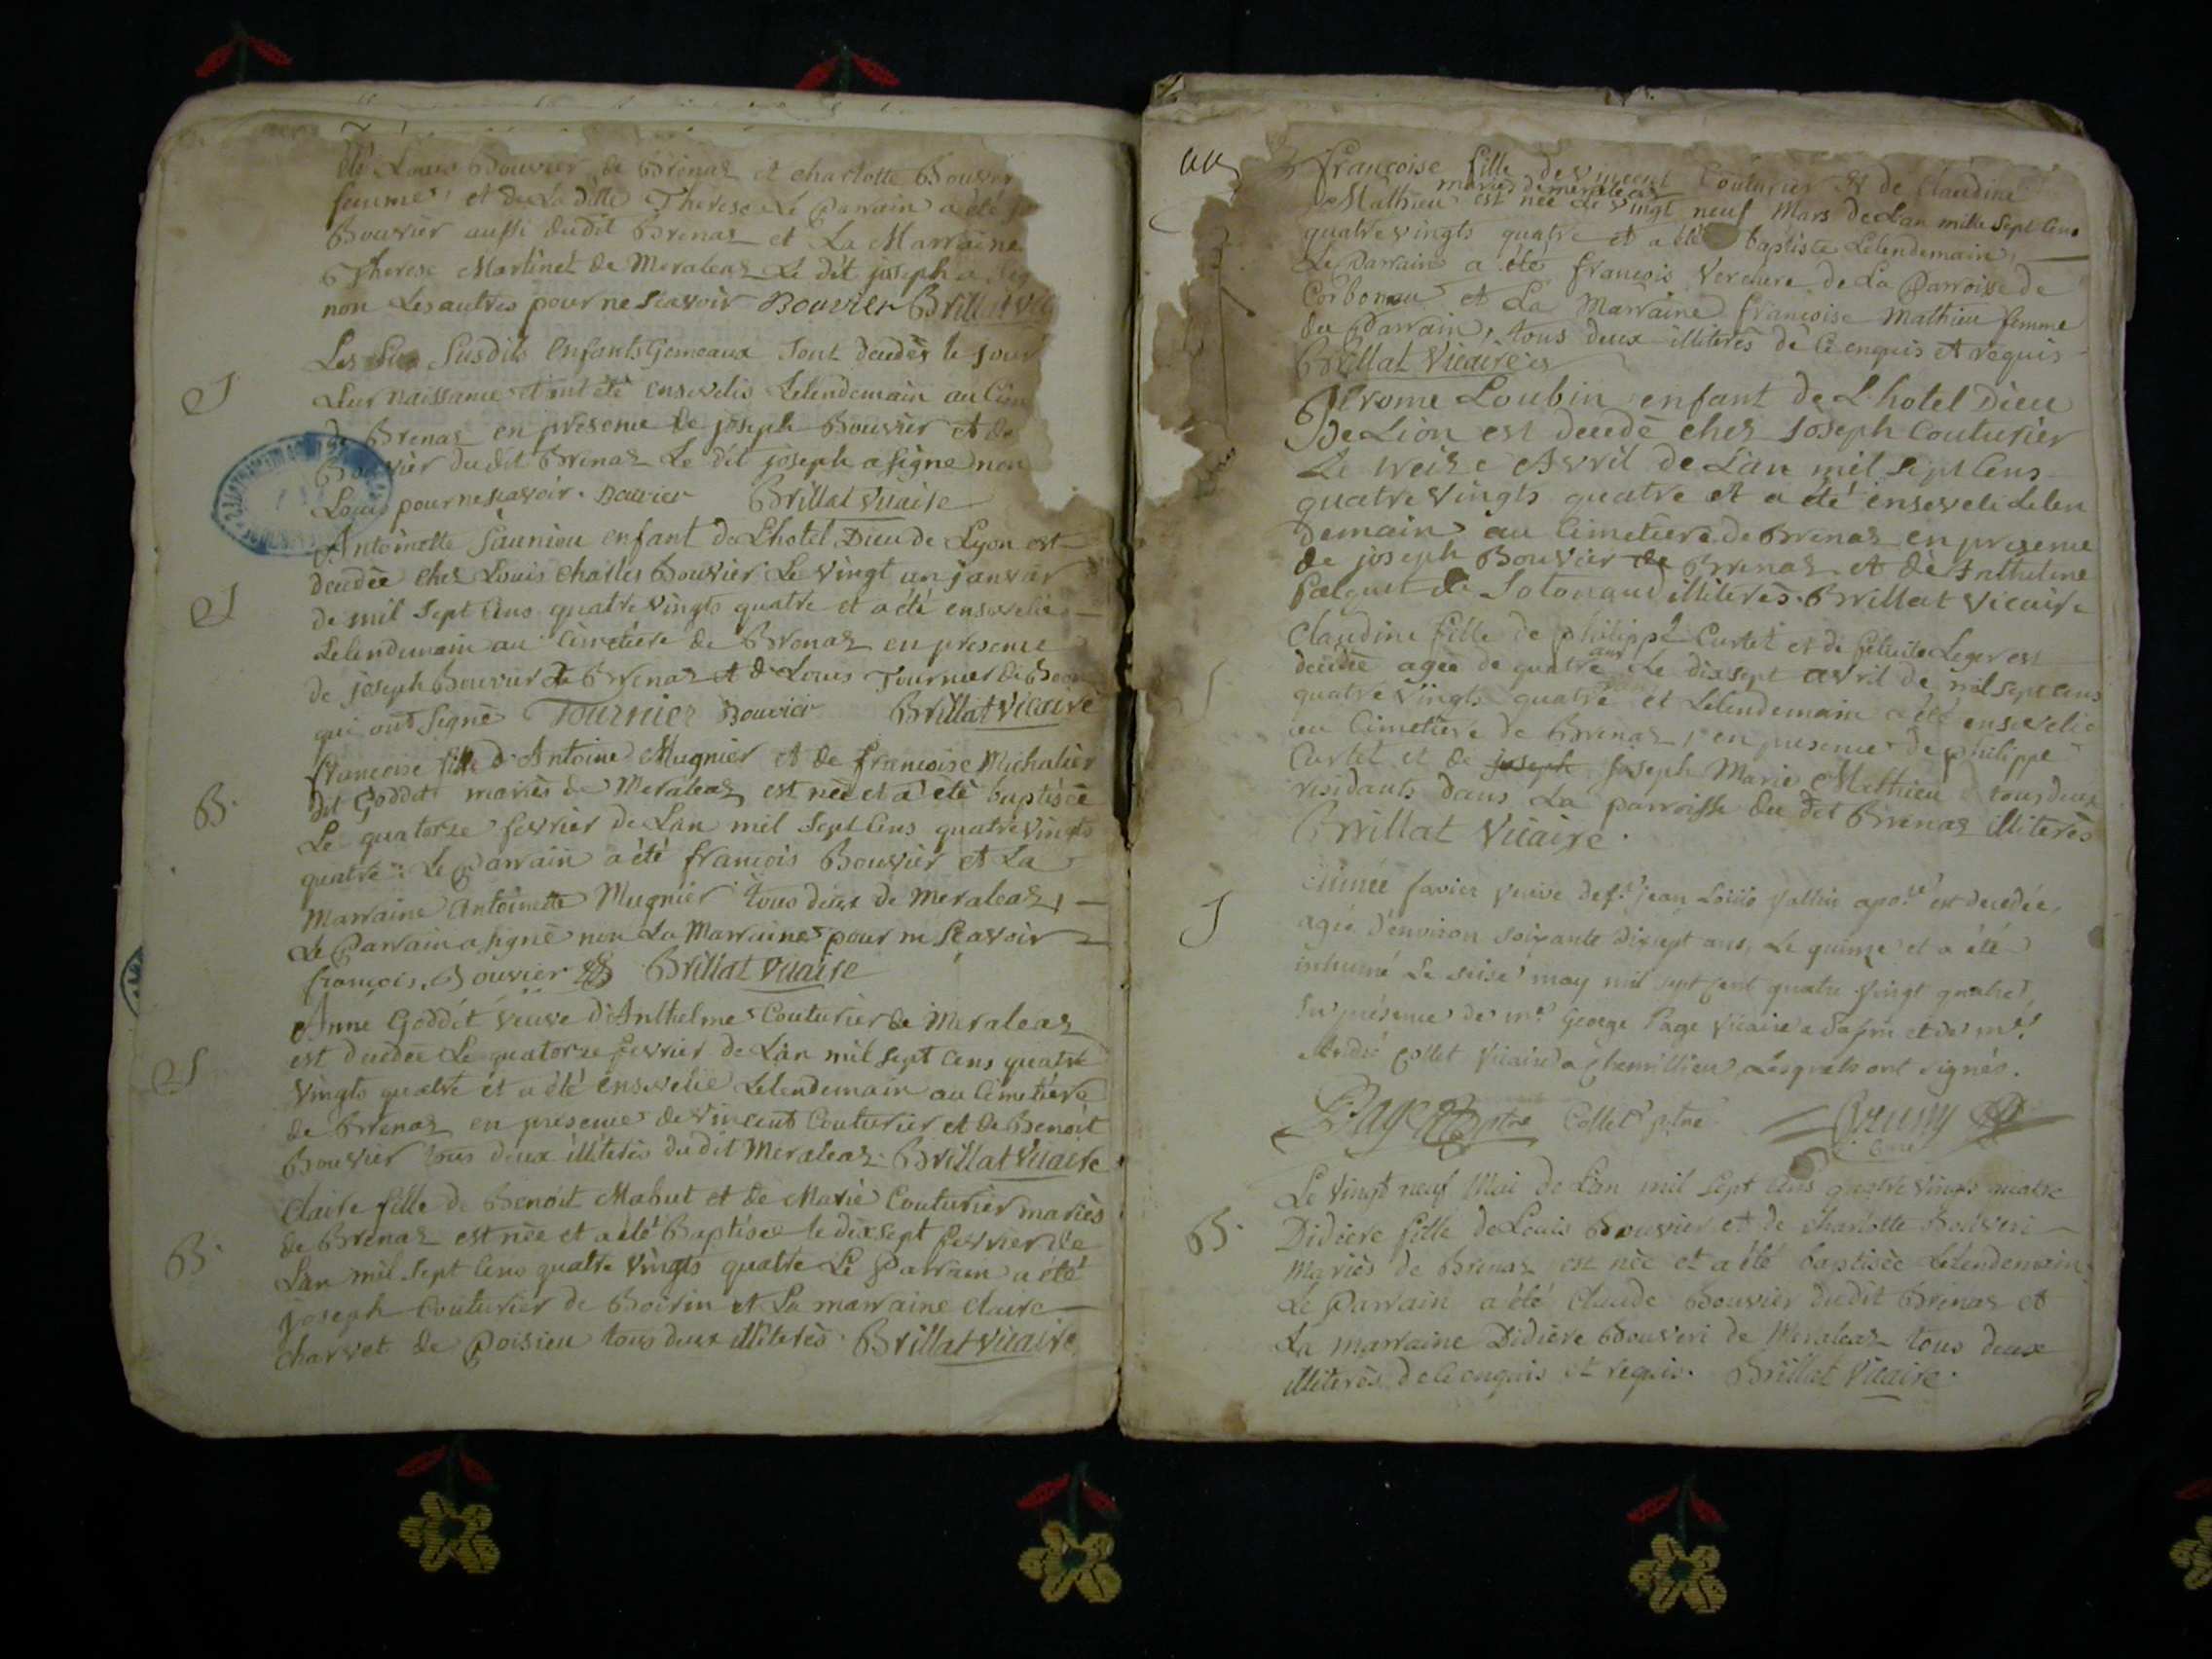 été Louis Bouvier de Brenaz et charlotte Bouve
femme, et de La ditte Therese Le Parrain a été j
Bouvier aussi dudit Brenaz et La Marraine
Therese Martinet de Meraleaz Le dit joseph a sig
non Les autres pour ne scavoir Bouvier Brillat vic
Les susdits enfants Gemeaux sont decedès le jour
S
Leur naissance et ont été ensevelis Lelendemain au Cim
Brenaz en presence de joseph Bouvier et de
Bouvier dudit Brenaz Le dit joseph a signe non
Louis pour ne scavoir. Bouvier Brillat vicaire
Antoinette enfant de L'hotel Dieu de Lyon est
decedèe chez Louis Charles Bouvier Le vingt un janvier
S
de mil sept Cens quatre vingts quatre et a été ensevelie
Lelendemain au Cimetiere de Brenaz en presence
de joseph Bouvier de Brenaz et de Louis Tournier de
qui ont signè Tournier Bouvier Brillat Vicaire
francoise fille d'Antoine Mugnier et de francoise Michalier
dit Goddet mariès de Meraleaz est nèe et a été baptisèe
B.
Le quatorze fevrier de Lan mil sept Cens quatre vingts
quatre. Le Parrain a été francois Bouvier et La
Marraine Antoinette Mugnier tous deux de Meraleaz,
Le Parrain a signè non La Marraine pour ne scavoir
francois. Bouvier Brillat Vicaire
Anne Goddet veuve d'Anthelme Couturier de Meraleaz
est decedèe Le quatorze fevrier de Lan mil sept cens quatre
S
vingts quatre et a été ensevelie Lelendemain au Cimetiére
de Brenaz en presence de vincent Couturier et de Benoit
Bouvier tous deux illiterès du dit Meraleaz. Brillat Vicaire
Claire fille de Benoit Mabut et de Marie Couturier mariès
de Brenaz est nèe et a été Baptisèe le dixsept fevrier de
B.
Lan mil sept Cens quatre vingts quatre Le Parrain a été
joseph Couturier de Boirin et La marraine Claire
Charvet de Poisieu tous deux illiterès. Brillat Vicaire
francoise fille de vincent Couturier et de Claudine
mariès de meraleaz
Mathieu est nèe Le vingt neuf Mars de Lan mille sept Cens
quatre vingts quatre et a été baptisèe Lelendemain,
Le Parrain a été francois Verchere de La Parroisse de
Corbonou et La Marraine francoise Mathieu femme
du Parrain, tous deux illiterès de Ce enquis et requis
Brillat Vicaire
Jerome Loubin enfant de L'hotel Dieu
De Lion est decedè chez Joseph Couturier
Le treize Avril de Lan mil sept Cens
quatre vingts quatre et a été enseveli Lelen
demain au Cimetiere de Brenaz en presence
de joseph Bouvier de Brenaz et de Anthelme
de Sotonaud illiterès. Brillat Vicaire
Claudine fille de philippe Curtet et de Leger est
ans
decedèe agèe de quatre Le dixsept avril de mil sept cens
quatre vingts quatre et Lelendemain a été ensevelie
au Cimetiere de Brenaz, en presence de philippe
Curtet et de joseph Joseph Marie Mathieu tous deux
residants dans La parroisse du dit Brenaz illiterès
Brillat Vicaire.
favier veuve de f. jean Louis est decedée,
S
agée d'environ soixante dixsept ans, Le quinze et a été
inhumé Le seise may mil sept cent quatre vingt quatre
En présence de mre George Page Vicaire a et de mre
André Collet Vicaire a Chemillieu, Lesquels ont signés.
Page ptre Collet ptre
Curé
Le Vingt neuf Mai de Lan mil sept Cens quatre vingts quatre
B.
Didiere fille de Louis Bouvier et de Charlotte Bouveri
Mariès de Brenaz est nèe et a été baptisèe Lelendemain.
Le Parrain a été Claude Bouvier dudit Brenaz et
La marraine Didière Bouveri de Meraleaz tous deux
illiterès de Ce enquis et requis. Brillat Vicaire.